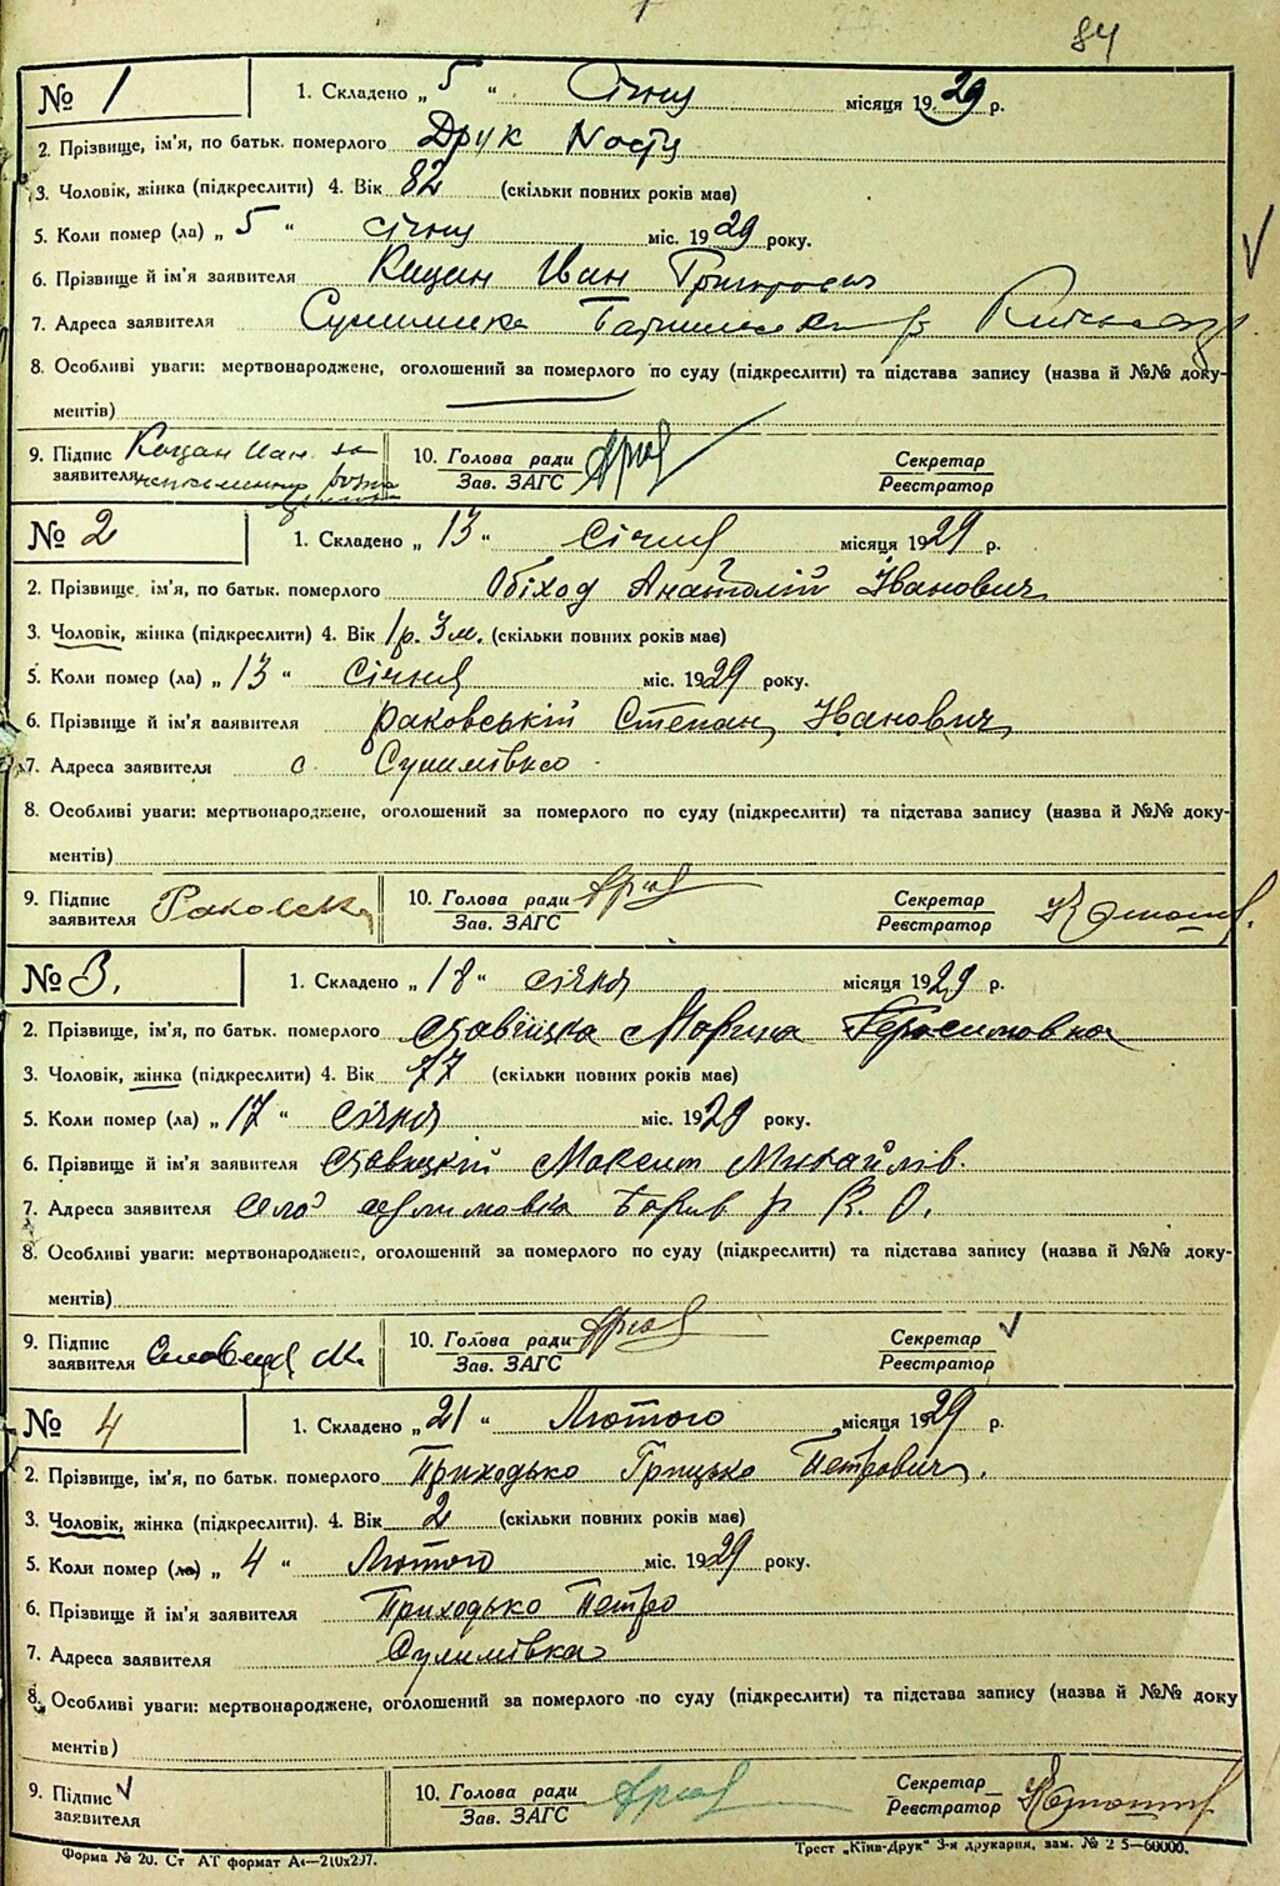 84
№ 1 1. Складено „ 5 “ Січня місяця 1929 р.
2. Прізвище, ім'я, по батьк. померлого Друк
3. Чоловік, жінка (підкреслити) 4. Вік 82 (скільки повних років має)
5. Коли помер (ла) „ 5 “ січня міс. 1929 року.
6. Прізвище й ім'я заявителя Кицан Іван Григорович
7. Адреса заявителя Сулимівка
8. Особливі уваги: мертвонароджене, оголошений за померлого по суду (підкреслити) та підстава запису (назва й №№ доку-
ментів)
9. Підпис заявителя 10. Голова ради Зав. ЗАГС Секретар Реєстратор
№ 2 1. Складено „ 13 “ Січня місяця 1929 р.
2. Прізвище, ім'я, по батьк. померлого Обіход Анатолій Іванович
3. Чоловік, жінка (підкреслити) 4. Вік 1 р. 3 м. (скільки повних років має)
5. Коли помер (ла) „ 13 “ Січня міс. 1929 року.
6. Прізвище й ім'я заявителя Раковській Степан Іванович
7. Адреса заявителя с Сулимівка
8. Особливі уваги: мертвонароджене, оголошений за померлого по суду (підкреслити) та підстава запису (назва й №№ доку-
ментів)
9. Підпис заявителя 10. Голова ради Зав. ЗАГС Секретар Реєстратор
№ 3. 1. Складено „ 18 “ січня місяця 1929 р.
2. Прізвище, ім'я, по батьк. померлого Марина Герасимовна
3. Чоловік, жінка (підкреслити) 4. Вік 77 (скільки повних років має)
5. Коли помер (ла) „ 17 “ січня міс. 1929 року.
6. Прізвище й ім'я заявителя Максим Михайлів.
7. Адреса заявителя село Борис р К. О.
8. Особливі уваги: мертвонароджене, оголошений за померлого по суду (підкреслити) та підстава запису (назва й №№ доку-
ментів)
9. Підпис заявителя 10. Голова ради Зав. ЗАГС Секретар Реєстратор
№ 4 1. Складено „ 21 “ Лютого місяця 1929 р.
2. Прізвище, ім'я, по батьк. померлого Приходько Грицько Петрович.
3. Чоловік, жінка (підкреслити). 4. Вік 2 (скільки повних років має)
5. Коли помер (ла) „ 4 “ Лютого міс. 1929 року.
6. Прізвище й ім'я заявителя Приходько Петро
7. Адреса заявителя Сулимівка
8. Особливі уваги: мертвонароджене, оголошений за померлого по суду (підкреслити) та підстава запису (назва й №№ доку
ментів)
9. Підпис заявителя 10. Голова ради Зав. ЗАГС Секретар Реєстратор
Форма № 20. Ст АТ формат А₄—210x297. Трест „Київ-Друк“ 3-я друкарня, зам. № 2 5—60000.